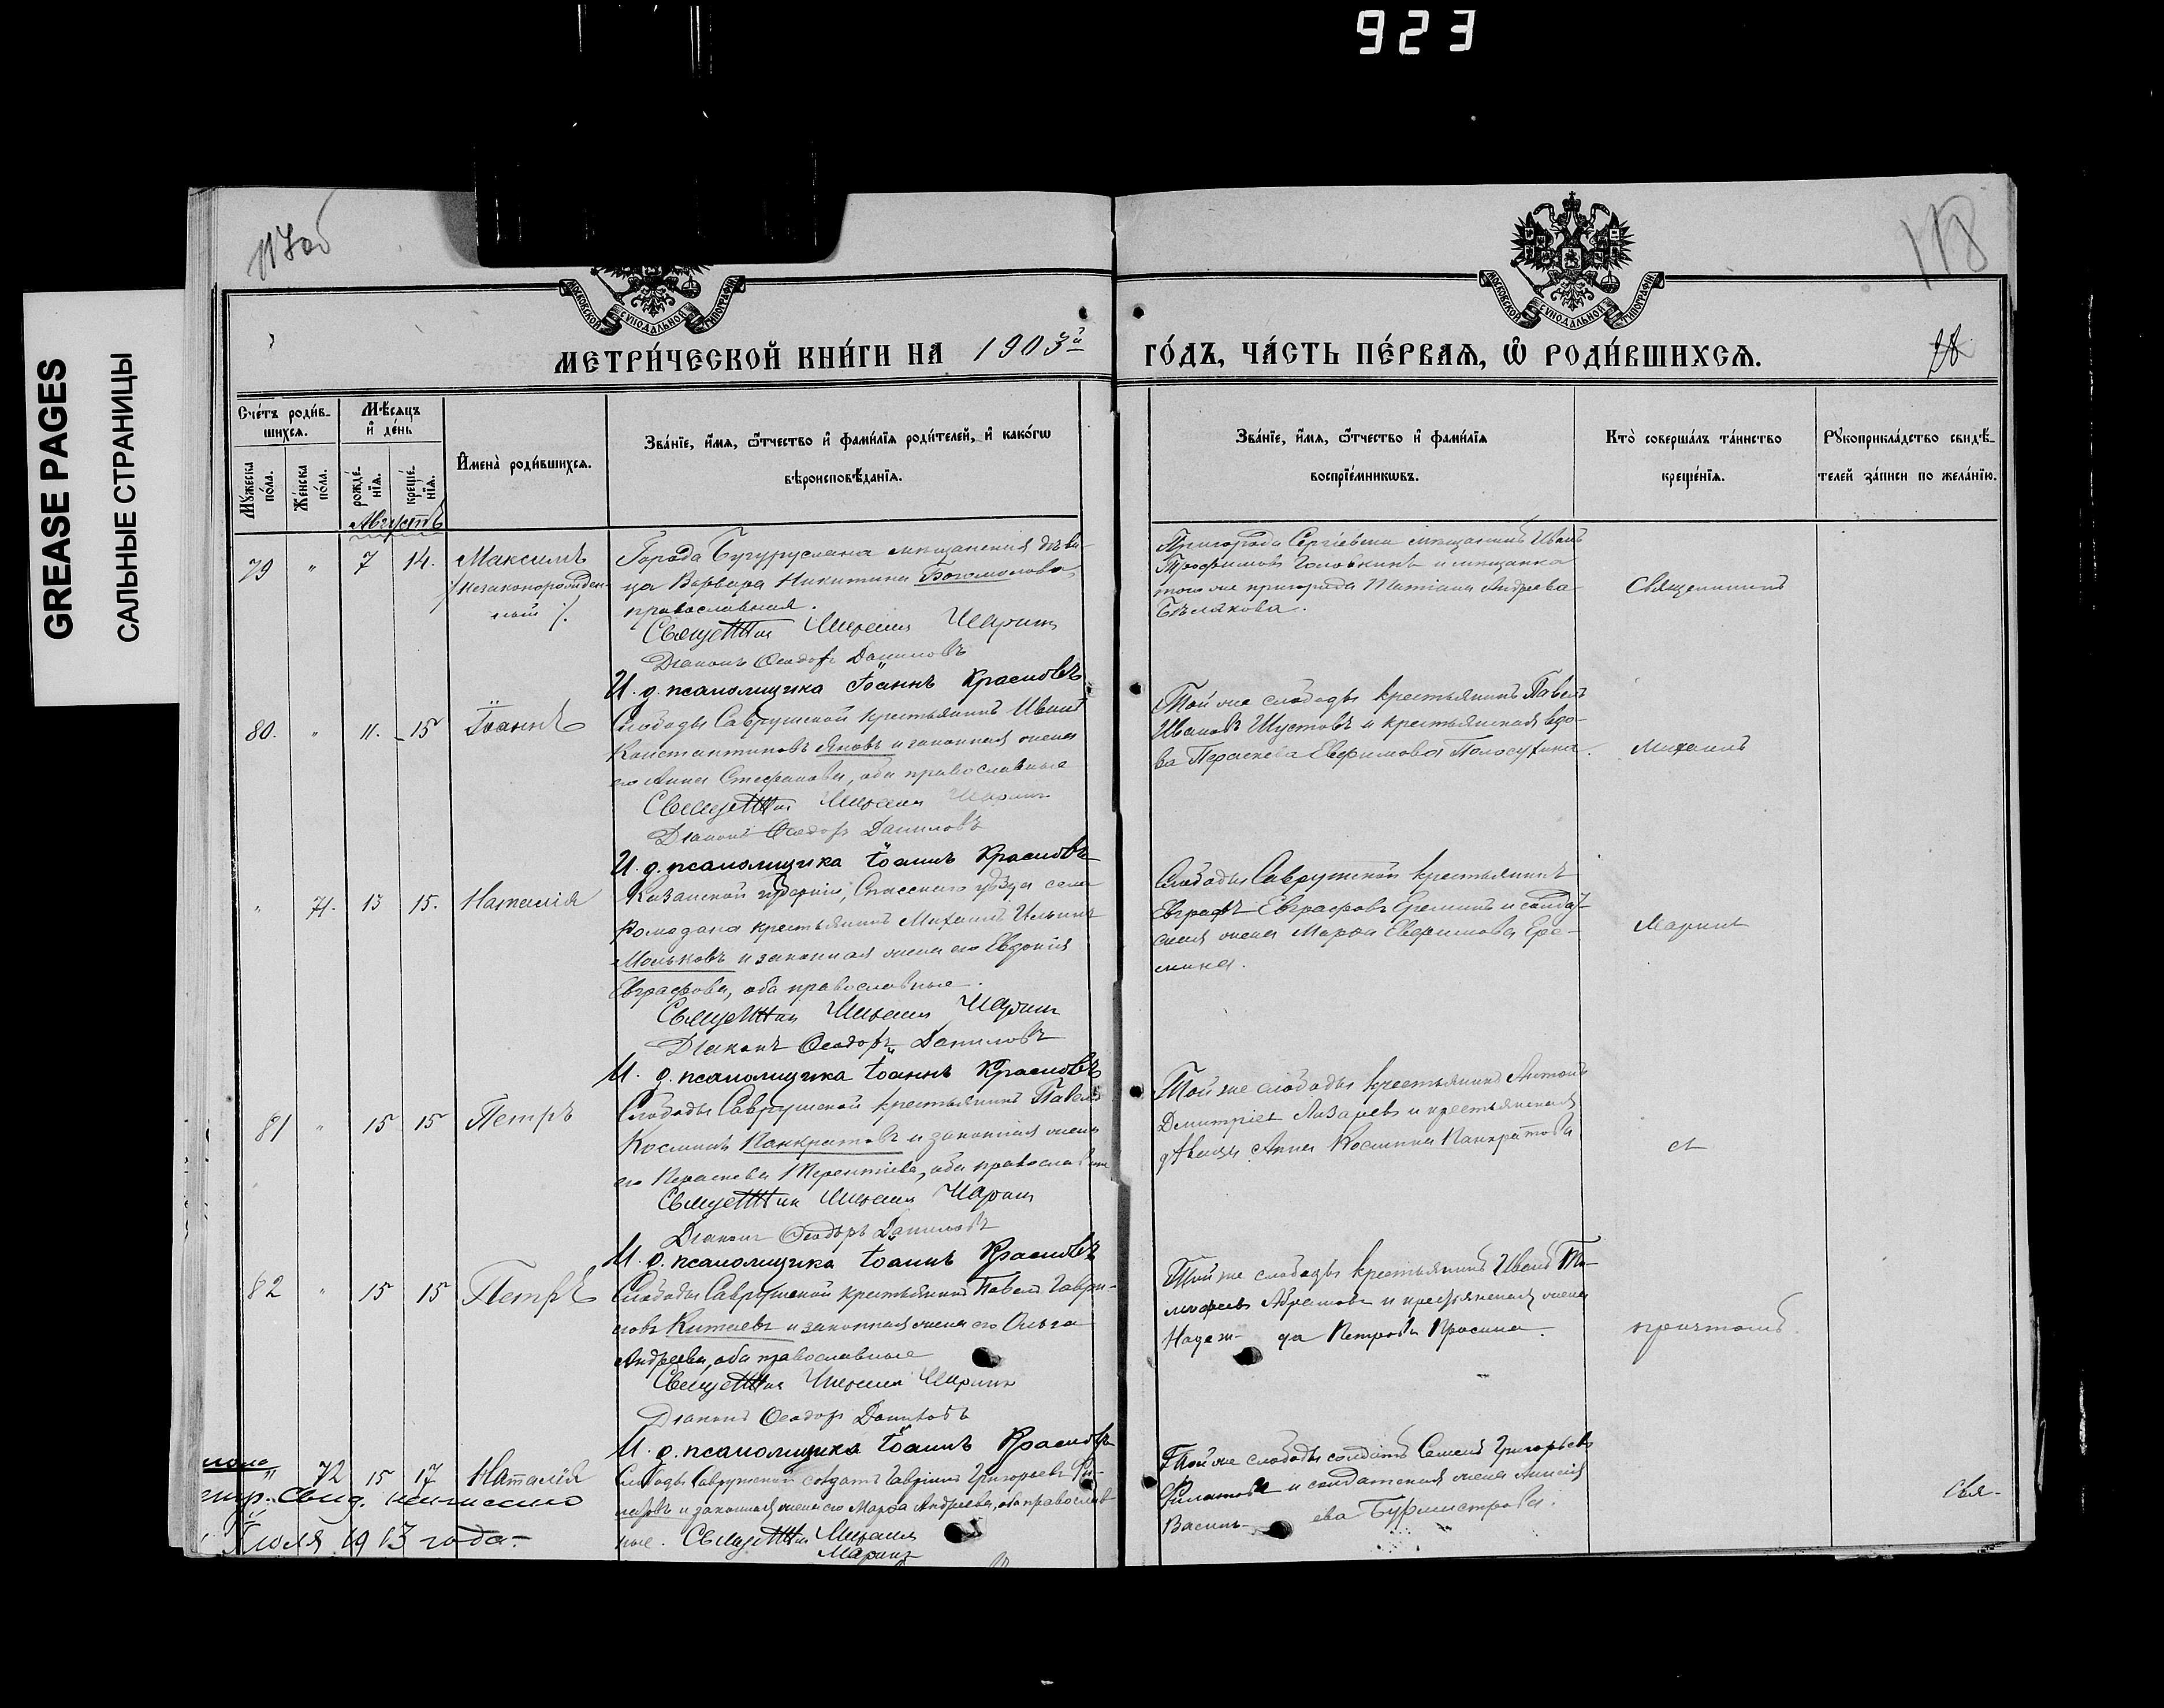 923
GREASE PAGES
САЛЬНЫЕ СТРАНИЦЫ
117об
118
МОСКОВСКОЙ СУНОДАЛЬНОЙ ТИПОГРАФІИ
МОСКОВСКОЙ СУНОДАЛЬНОЙ ТИПОГРАФІИ
МЕТРИ́ЧЕСКОЙ КНИ́ГИ НА 1903й
ГО́ДЪ, ЧА́СТЬ ПЕ́РВАѦ, Ѡ҆ РОДИ́ВШИХСѦ.
28
Сче́тъ роди́в-
шихсѧ.
Мѣ́сѧцъ
и҆ де́нь
Мꙋ́жеска по́ла.
Же́нска по́ла.
рожде́-
нїѧ.
креще́-
нїѧ.
И҆мена̀ роди́вшихсѧ.
Зва́нїе, и҆́мѧ, ѻ҆́тчество и҆ фами́лїѧ роди́телей, и҆ како́гѡ
вѣроисповѣ́данїѧ.
Зва́нїе, и҆́мѧ, ѻ҆́тчество и҆ фами́лїѧ
воспрїе́мникѡвъ.
Кто̀ соверша́лъ та́инство
креще́нїѧ.
Рꙋкоприкла́дство свидѣ́-
телей за́писи по жела́нїю.
Августъ
79 " 7 14. Максимъ
/незаконорожден-
ный/.
Города Бугуруслана мещанская дѣви-
ца Варвара Никитина Богомолова,
православная.
Священник Михаил Марин
Діаконъ Ѳеодоръ Даниловъ
И. д. псаломщика Іоаннъ Красновъ
Пригорода Сергіевска мещанинъ Иванъ
Трофимовъ Головкинъ и мещанка
того же пригорода Татіана Андреева
Бѣлякова.
Священникъ
80. " 11. 15 Іоаннъ
Слободы Саврушской крестьянинъ Иванъ
Константиновъ Яновъ и законная жена
его Анна Стефанова, оба православные
Священник Михаил Марин
Діаконъ Ѳеодоръ Даниловъ
И. д. псаломщика Іоаннъ Красновъ
Той же слободы крестьянинъ Павелъ
Ивановъ Шустовъ и крестьянская вдо-
ва Параскева Евфимова Полосухина.
Михаилъ
" 71. 13 15. Наталія
Казанской губерніи, Спасскаго уѣзда села
Ромодана крестьянинъ Михаилъ Ильинъ
Мольковъ и законная жена его Евдокія
Евграфова, оба православные.
Священник Михаил Марин
Діаконъ Ѳеодоръ Даниловъ
И. д. псаломщика Іоаннъ Красновъ
Слободы Саврушской крестьянинъ
Евграфъ Евграфовъ Ереминъ и солдат-
ская жена Марѳа Евфимова Ере-
мина.
Маринъ
81 " 15 15 Петръ
Слободы Саврушской крестьянинъ Павелъ
Косминъ Панкратовъ и законная жена
его Параскева Терентіева, оба православные
Священник Михаил Марин
Діаконъ Ѳеодоръ Даниловъ
И. д. псаломщика Іоаннъ Красновъ
Той же слободы крестьянинъ Антонъ
Димитріевъ Лизаревъ и крестьянская
дѣвица Анна Космина Панкратова
съ
82 " 15 15 Петръ
Слободы Саврушской крестьянинъ Павелъ Гаври-
ловъ Китаевъ и законная жена его Ольга
Андреева, оба православные
Священник Михаил Марин
Діаконъ Ѳеодоръ Даниловъ
И. д. псаломщика Іоаннъ Красновъ
Той же слободы крестьянинъ Иванъ Ти-
мофеевъ Абрамовъ и крестьянская жена
Надеж- да Петрова Просина.
причтомъ.
" 72 15 17 Наталія
Слободы Саврушской солдатъ Гавріилъ Григорьевъ
и законная жена его Марѳа Андреева, оба православ-
ные. Священник Михаил
Марин
Той же слободы солдатъ Семенъ Григорьевъ
Филатовъ и солдатская жена Анисія
Василь- ева Бурмистрова.
Свя-
Свид.
Іюля 1913 года.